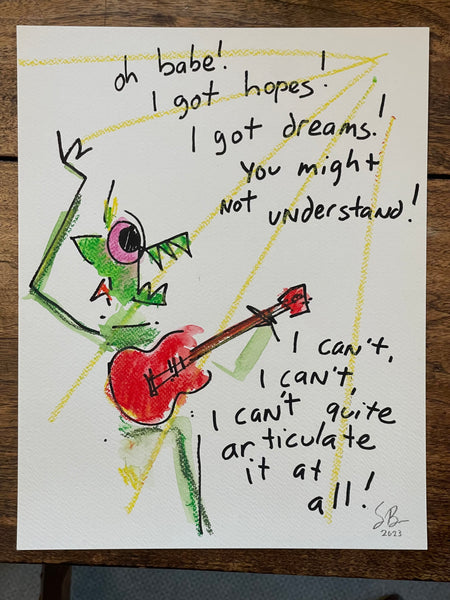 oh babe!
I got hopes!
I got dreams!
You might
not understand!
I can't,
I can't,
I can't quite
articulate
it at
all!
SB
2023